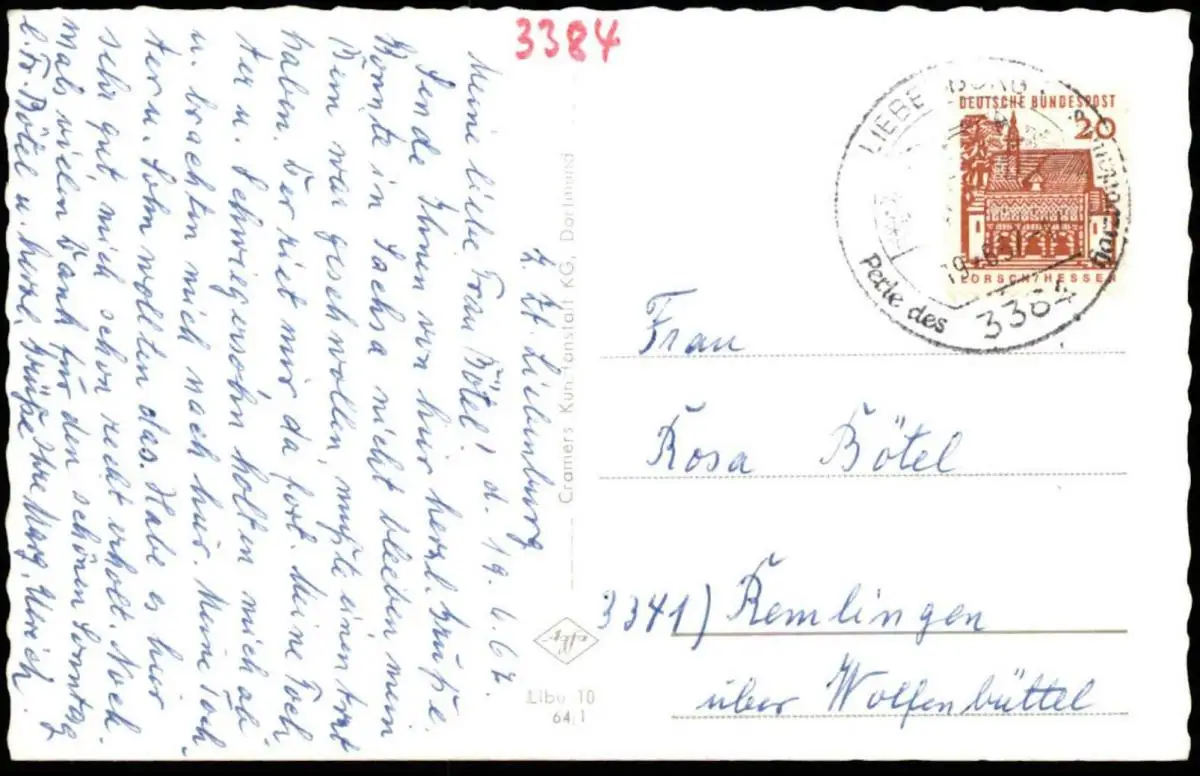 3384
z. Zt. Liebenburg
d. 19.6.67.
Meine liebe Frau Bötel!
Sende Ihnen von hier herzl. Grüße
Konnte in Sachsa nicht bleiben mein
Bein war geschwollen, mußte einen Arzt
haben. Der riet mir da fort. Meine Toch
ter u. Schwiegersohn holten mich ab
u. brachten mich nach hier. Meine Toch-
ter u. Sohn wollten das. Habe es hier
sehr gut mich schon recht erholt. Noch
mals vielen Dank für den schönen Sonntag
l. Fr. Bötel u. herzl. Grüße Ihre Marg. Ulrich.
Cramers Kunstanstalt KG, Dortmund
Libu 10
64,1
DEUTSCHE BUNDESPOST
20
LORSCH/HESSEN
Perle des
3384
Frau
Rosa Bötel
3341) Remlingen
über Wolfenbüttel